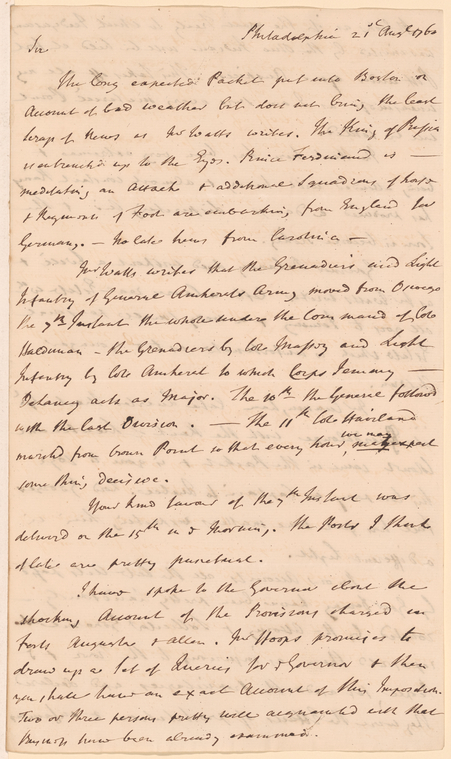 Philadelphia 21st Augt 1760
Sir
The long expected Packet put into Boston on
Account of bad weather but does not bring the least
scrap of News as Mr Watts writes. The King of Prussia
is entrench'd up to the Eyes. Prince Ferdinand is —
medetating an Attack & additional Squadrons of horse
& Regiments of Foot are embarking from England for
Germany. — No late news from Carolina —
Mr Watts writes that the Grenadiers and Light
Infantry of General Amhersts Army moved from Oswego
the 7th Instant the whole under the Command of Colo
Haldiman — the Grenadiers by Colo Massey and Light
Infantry by Colo Amherst to which Corps Jemmy —
Delancy acts as Major. The 10th the General followed
with the last Division. — The 11th Colo Haviland
marched from Crown Point so that every hour we may expect
some thing decisive.
Your kind favour of the 7th Instant was
deliverd on the 15th in ye Morning. The Posts I think
of late are pretty punctual.
I have spoke to the Governor about the
shocking Account of the Provisions charged in
Forts Augusta & Allen. Mr Hoops promises to
draw up a Set of Queries for ye Governor & then
you shall have an exact Account of this Imposition.
Two or three persons pretty well acquainted with that
Business have been already examined.